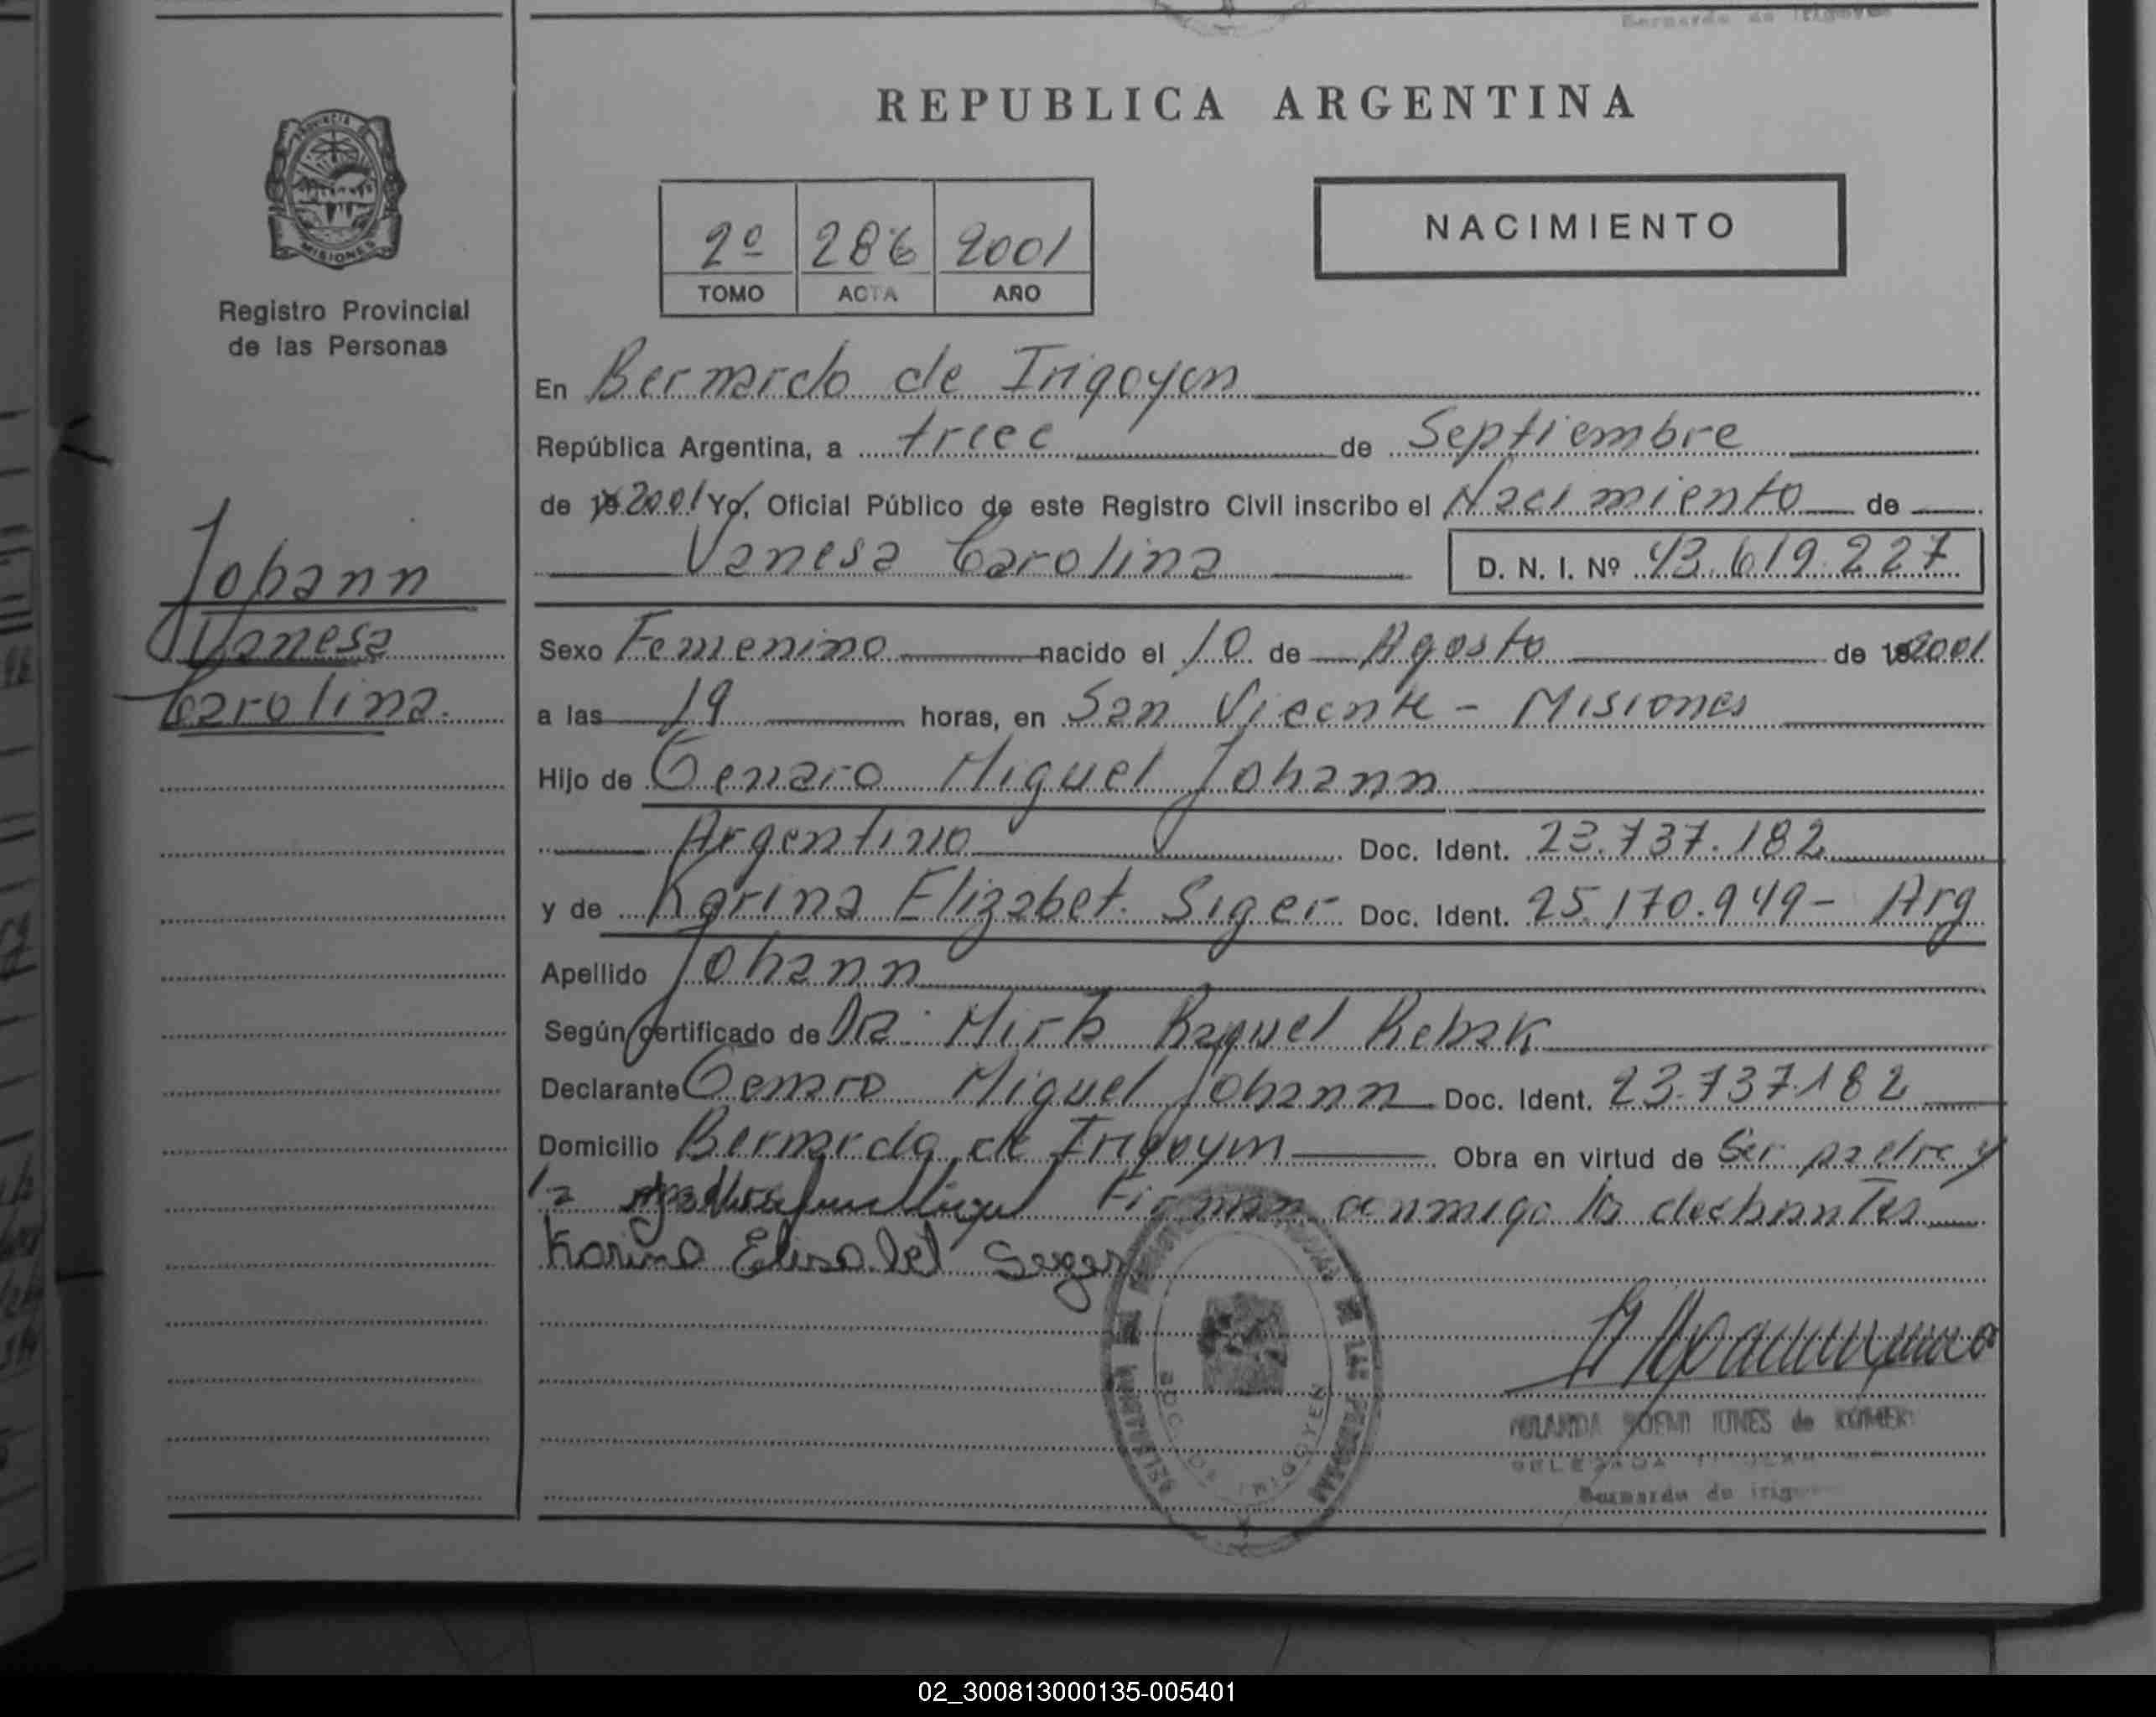 REPUBLICA ARGENTINA
PROVINCIA DE
MISIONES
Registro Provincial
de las Personas
2º 286 2001
TOMO ACTA AÑO
NACIMIENTO
En Bernardo de Irigoyen
República Argentina, a trece de Septiembre
de 19 2001 Yo, Oficial Público de este Registro Civil inscribo el Nacimiento de
Vanesa Carolina D. N. I. Nº 43.619.227
Johann
Vanesa
Carolina.
Sexo Femenino nacido el 10 de Agosto de 192001
a las 19 horas, en San Vicente - Misiones
Hijo de Genaro Miguel Johann
Argentino Doc. Ident. 23.737.182
y de Karina Elizabet. Siger Doc. Ident. 25.170.949- Arg
Apellido Johann
Según certificado de Dra. Mirta Raquel Rebak
Declarante Genaro Miguel Johann Doc. Ident. 23.737.182
Domicilio Bernardo de Irigoyen Obra en virtud de Ser padre y
la Firman conmigo los declarantes
Karina Elisabet Seger
BDO. DE IRIGOYEN
DE LAS PERSONAS
NOEMI de
DELEGADA
Bernardo de Irigoyen
02_300813000135-005401